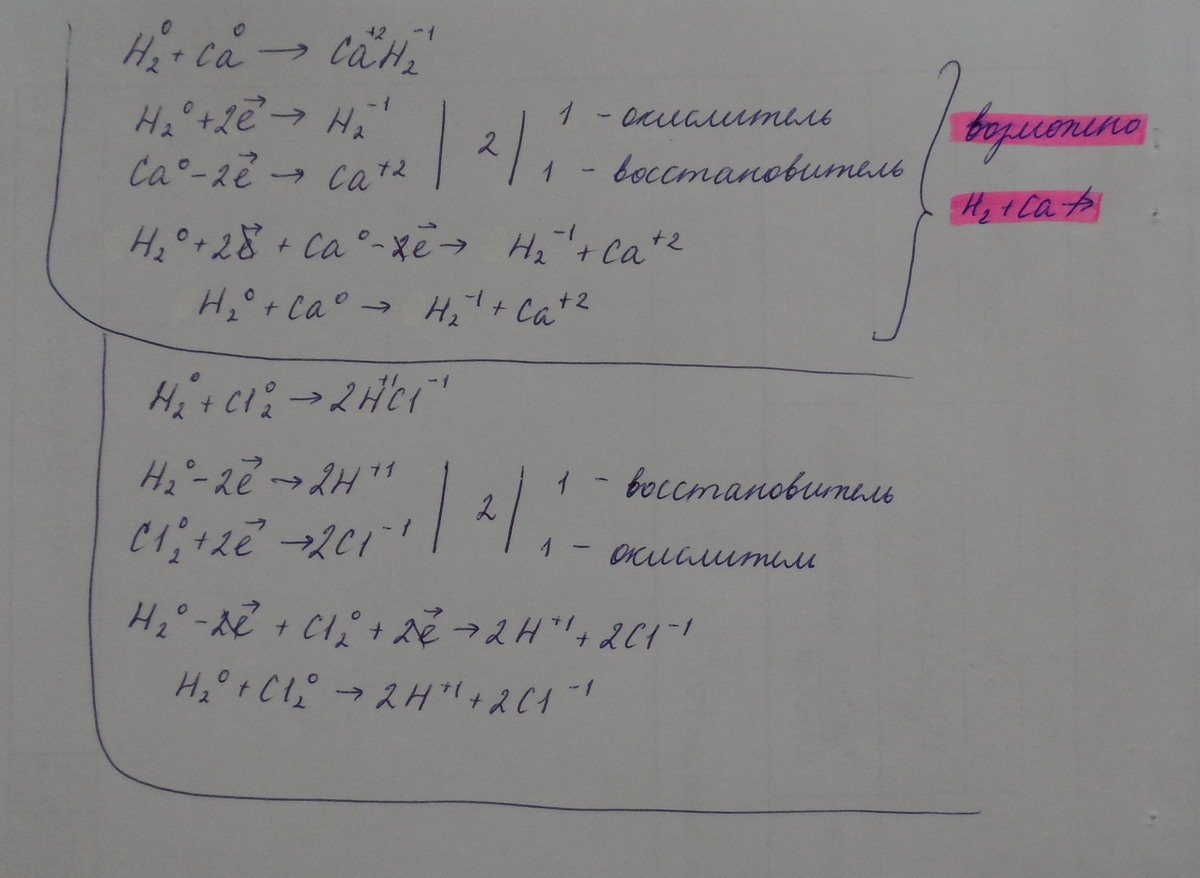 H₂⁰ + Ca⁰ → Ca⁺²H₂⁻¹
H₂⁰ + 2e⃗ → H₂⁻¹ | 2 | 1 - окислитель
Ca⁰ - 2e⃗ → Ca⁺² | | 1 - восстановитель
H₂⁰ + 2e⃗ + Ca⁰ - 2e⃗ → H₂⁻¹ + Ca⁺²
H₂⁰ + Ca⁰ → H₂⁻¹ + Ca⁺²
возможно
H₂ + Ca ↛
H₂⁰ + Cl₂⁰ → 2H⁺¹Cl⁻¹
H₂⁰ - 2e⃗ → 2H⁺¹ | 2 | 1 - восстановитель
Cl₂⁰ + 2e⃗ → 2Cl⁻¹ | | 1 - окислител
H₂⁰ - 2e⃗ + Cl₂⁰ + 2e⃗ → 2H⁺¹ + 2Cl⁻¹
H₂⁰ + Cl₂⁰ → 2H⁺¹ + 2Cl⁻¹